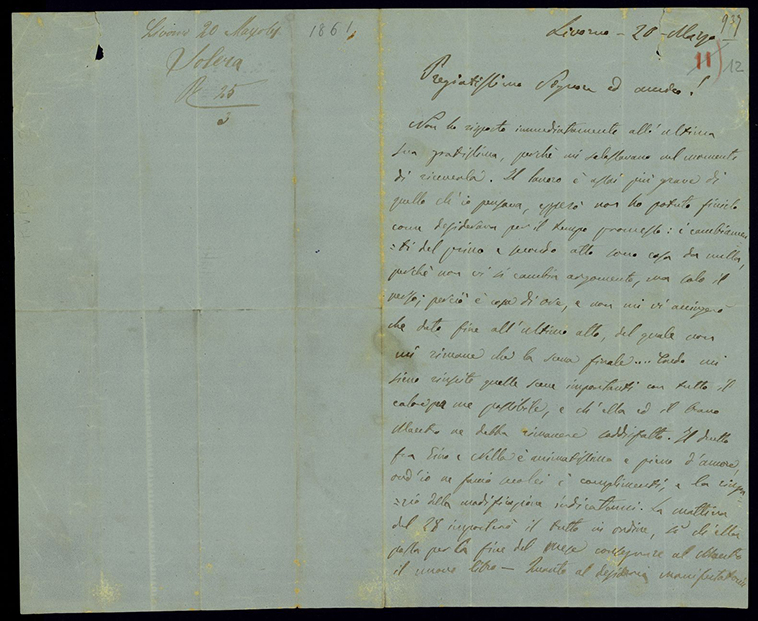 Livorno 20 Marzo 61
1861
Solera
R 25
Livorno - 20 - Marzo
939
11
12
Pregiatissimo Signore ed amico!
Non ho risposto immediatamente all'ultima
sua gratissima, perchè mi nel momento
di riceverla. Il lavoro è assai più grave di
quello ch'io pensava, epperò non ho potuto finirlo
come desiderava per il tempo promesso: i cambiamen
=ti del primo e secondo atto sono cosa da nulla,
perchè non vi si cambia argomento, ma solo il
perciò è cosa di ore, e non mi vi
che dato fine all'ultimo atto, del quale non
mi rimane che la scena finale.... Credo mi
sieno riuscite quelle scene importanti con tutto il
calore per me possibile, e ch'ella ed il bravo
Maestro ne debba rimanere soddisfatto. Il duetto
fra e è animatissimo e pieno d'amore,
ond'io ne i complimenti, e la ringra
=zio della modificazione indicatami. La mattina
del 28 il tutto in ordine, sì ch'ella
possa per la fine del mese consegnare al Maestro
il nuovo libro — Quanto al desiderio